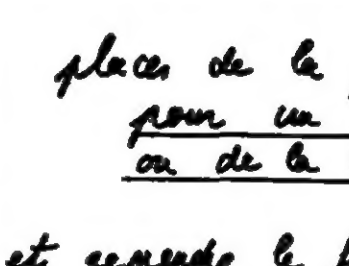 placer de la
pour un
ou de la
et le